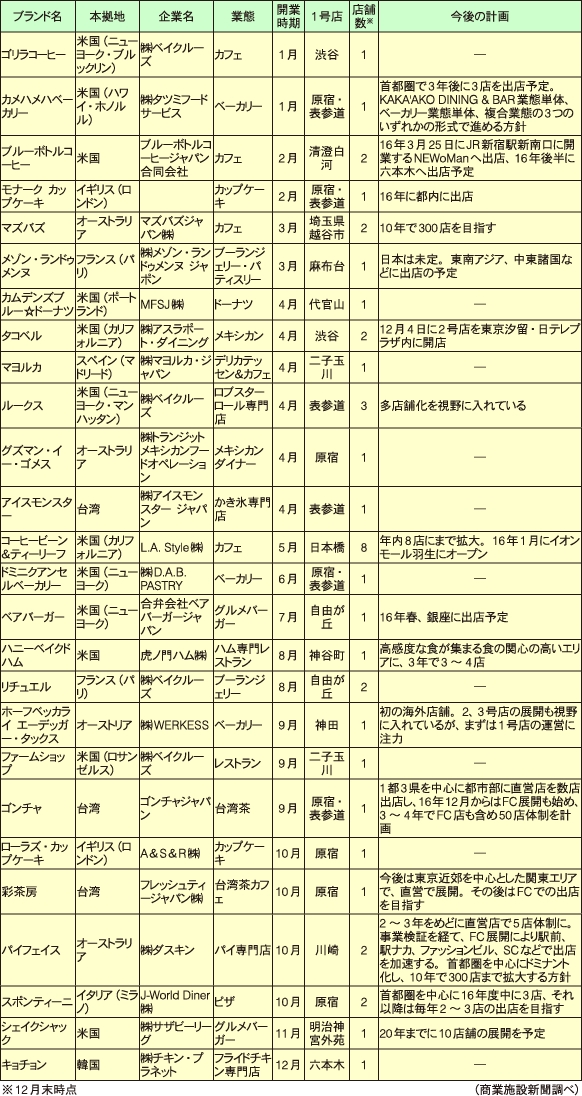 ブランド名 本拠地 企業名 業態 開業時期 1号店 店舗数※ 今後の計画
ゴリラコーヒー 米国（ニューヨーク・ブルックリン） ㈱ベイクルーズ カフェ 1月 渋谷 1 ―
カメハメハベーカリー 米国（ハワイ・ホノルル） ㈱タツミフードサービス ベーカリー 1月 原宿・表参道 1 首都圏で3年後に3店を出店予定。KAKA'AKO DINING & BAR業態単体、ベーカリー業態単体、複合業態の3つのいずれかの形式で進める方針
ブルーボトルコーヒー 米国 ブルーボトルコーヒージャパン合同会社 カフェ 2月 清澄白河 2 16年3月25日にJR新宿駅新南口に開業するNEWoManへ出店、16年後半に六本木へ出店予定
モナーク カップケーキ イギリス（ロンドン） カップケーキ 2月 原宿・表参道 1 16年に都内に出店
マズバズ オーストラリア マズバズジャパン㈱ カフェ 3月 埼玉県越谷市 2 10年で300店を目指す
メゾン・ランドゥメンヌ フランス（パリ） ㈱メゾン・ランドゥメンヌ ジャポン ブーランジェリー・パティスリー 3月 麻布台 1 日本は未定。東南アジア、中東諸国などに出店の予定
カムデンズブルー☆ドーナツ 米国（ポートランド） MFSJ㈱ ドーナツ 4月 代官山 1 ―
タコベル 米国（カリフォルニア） ㈱アスラポート・ダイニング メキシカン 4月 渋谷 2 12月4日に2号店を東京汐留・日テレプラザ内に開店
マヨルカ スペイン（マドリード） ㈱マヨルカ・ジャパン デリカテッセン&カフェ 4月 二子玉川 1 ―
ルークス 米国（ニューヨーク・マンハッタン） ㈱ベイクルーズ ロブスターロール専門店 4月 表参道 3 多店舗化を視野に入れている
グズマン・イー・ゴメス オーストラリア ㈱トランジットメキシカンフードオペレーション メキシカンダイナー 4月 原宿 1 ―
アイスモンスター 台湾 ㈱アイスモンスター ジャパン かき氷専門店 4月 表参道 1 ―
コーヒービーン&ティーリーフ 米国（カリフォルニア） L.A. Style㈱ カフェ 5月 日本橋 8 年内8店にまで拡大。16年1月にイオンモール羽生にオープン
ドミニクアンセルベーカリー 米国（ニューヨーク） ㈱D.A.B. PASTRY ベーカリー 6月 原宿・表参道 1 ―
ベアバーガー 米国（ニューヨーク） 合弁会社ベアバーガージャパン グルメバーガー 7月 自由が丘 1 16年春、銀座に出店予定
ハニーベイクドハム 米国 虎ノ門ハム㈱ ハム専門レストラン 8月 神谷町 1 高感度な食が集まる食の関心の高いエリアに、3年で3～4店
リチュエル フランス（パリ） ㈱ベイクルーズ ブーランジェリー 8月 自由が丘 2 ―
ホーフベッカライ エーデッガー・タックス オーストリア ㈱WERKESS ベーカリー 9月 神田 1 初の海外店舗。2、3号店の展開も視野に入れているが、まずは1号店の運営に注力
ファームショップ 米国（ロサンゼルス） ㈱ベイクルーズ レストラン 9月 二子玉川 1 ―
ゴンチャ 台湾 ゴンチャジャパン 台湾茶 9月 原宿・表参道 1 1都3県を中心に都市部に直営店を数店出店し、16年12月からはFC展開も始め、3～4年でFC店も含め50店体制を計画
ローラズ・カップケーキ イギリス（ロンドン） A&S&R㈱ カップケーキ 10月 原宿 1 ―
彩茶房 台湾 フレッシュティージャパン㈱ 台湾茶カフェ 10月 原宿 1 今後は東京近郊を中心とした関東エリアで、直営で展開。その後はFCでの出店を目指す
パイフェイス オーストラリア ㈱ダスキン パイ専門店 10月 川崎 2 2～3年をめどに直営店で5店体制に。事業検証を経て、FC展開により駅前、駅ナカ、ファッションビル、SCなどで出店を加速する。首都圏を中心にドミナント化し、10年で300店まで拡大する方針
スポンティーニ イタリア（ミラノ） J-World Diner㈱ ピザ 10月 原宿 2 首都圏を中心に16年度中に3店、それ以降は毎年2～3店の出店を目指す
シェイクシャック 米国 ㈱サザビーリーグ グルメバーガー 11月 明治神宮外苑 1 20年までに10店舗の展開を予定
キョチョン 韓国 ㈱チキン・プラネット フライドチキン専門店 12月 六本木 1 ―
※12月末時点 （商業施設新聞調べ）